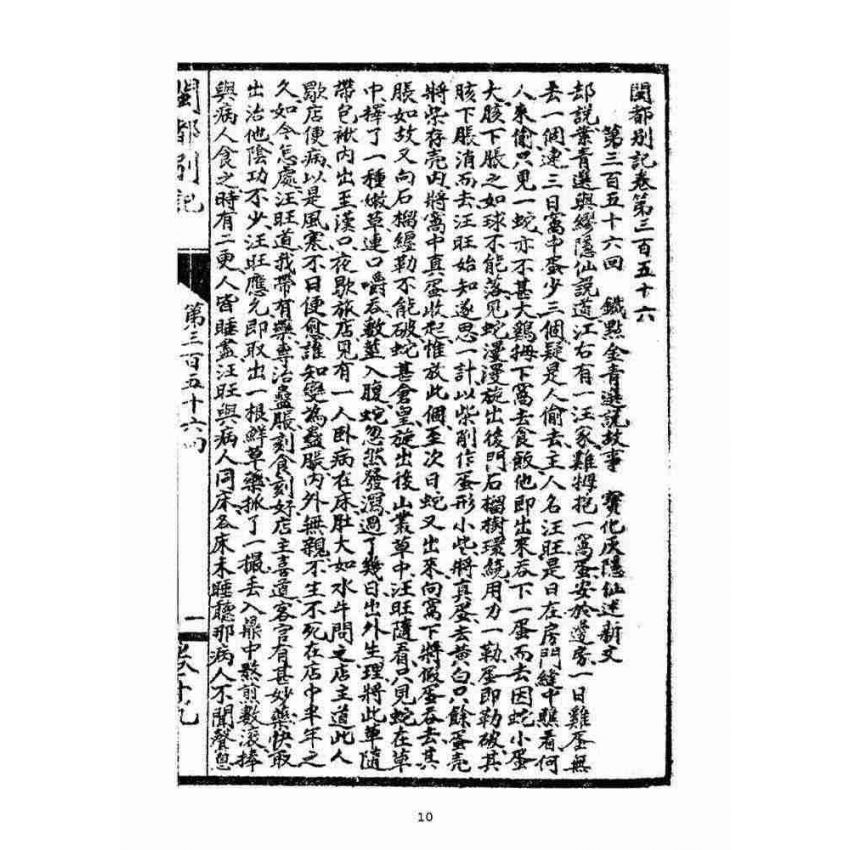 閩都别記卷第三百五十六
第三百五十六回 鐵點金青選説故事 寶化灰隱仙述新文
却説葉青選與繆隱仙説道江右有一汪家雞拇抱一窩蛋安於邊房一日雞蛋無
去一個連三日窩中蛋少三個疑是人偷去主人名汪旺是日在房門縫中瞧看何
人來偷只見一蛇亦不甚大鷄拇下窩去食飯他即出來吞下一蛋而去因蛇小蛋
大胲下脹之如球不能落見蛇漫漫旋出後門石榴樹環繞用力一勒蛋即勒破其
胲下脹消而去汪旺始知遂思一計以柴削作蛋形小些將真蛋去黄白只餘蛋壳
將柴存壳内將窩中真蛋收起惟放此個至次日蛇又出來向窩下將假蛋吞去其
脹如故又向石榴纏勒不能破蛇甚倉皇旋出後山叢草中汪旺隨看只見蛇在草
中擇了一種嫩草連口嚼吞數莖入腹蛇忽然發瀉過了幾日出外生理將此草隨
帶包袱内出至漢口夜歇旅店見有一人卧病在床肚大如水牛問之店主道此人
歇店便病以是風寒不日便愈誰知變為蠱脹内外無親不生不死在店中半年之
久如今怎處汪旺道我帶有藥專治蠱脹刻食刻好店主喜道客官有甚妙藥快取
出治他陰功不少汪旺應允即取出一根鮮草藥抓了一撮丢入鼎中熬煎數滚捧
與病人食之時有二更人皆睡盡汪旺與病人同床各床未睡聽那病人不聞聲息
閩都别記
第三百五十六回
一
10